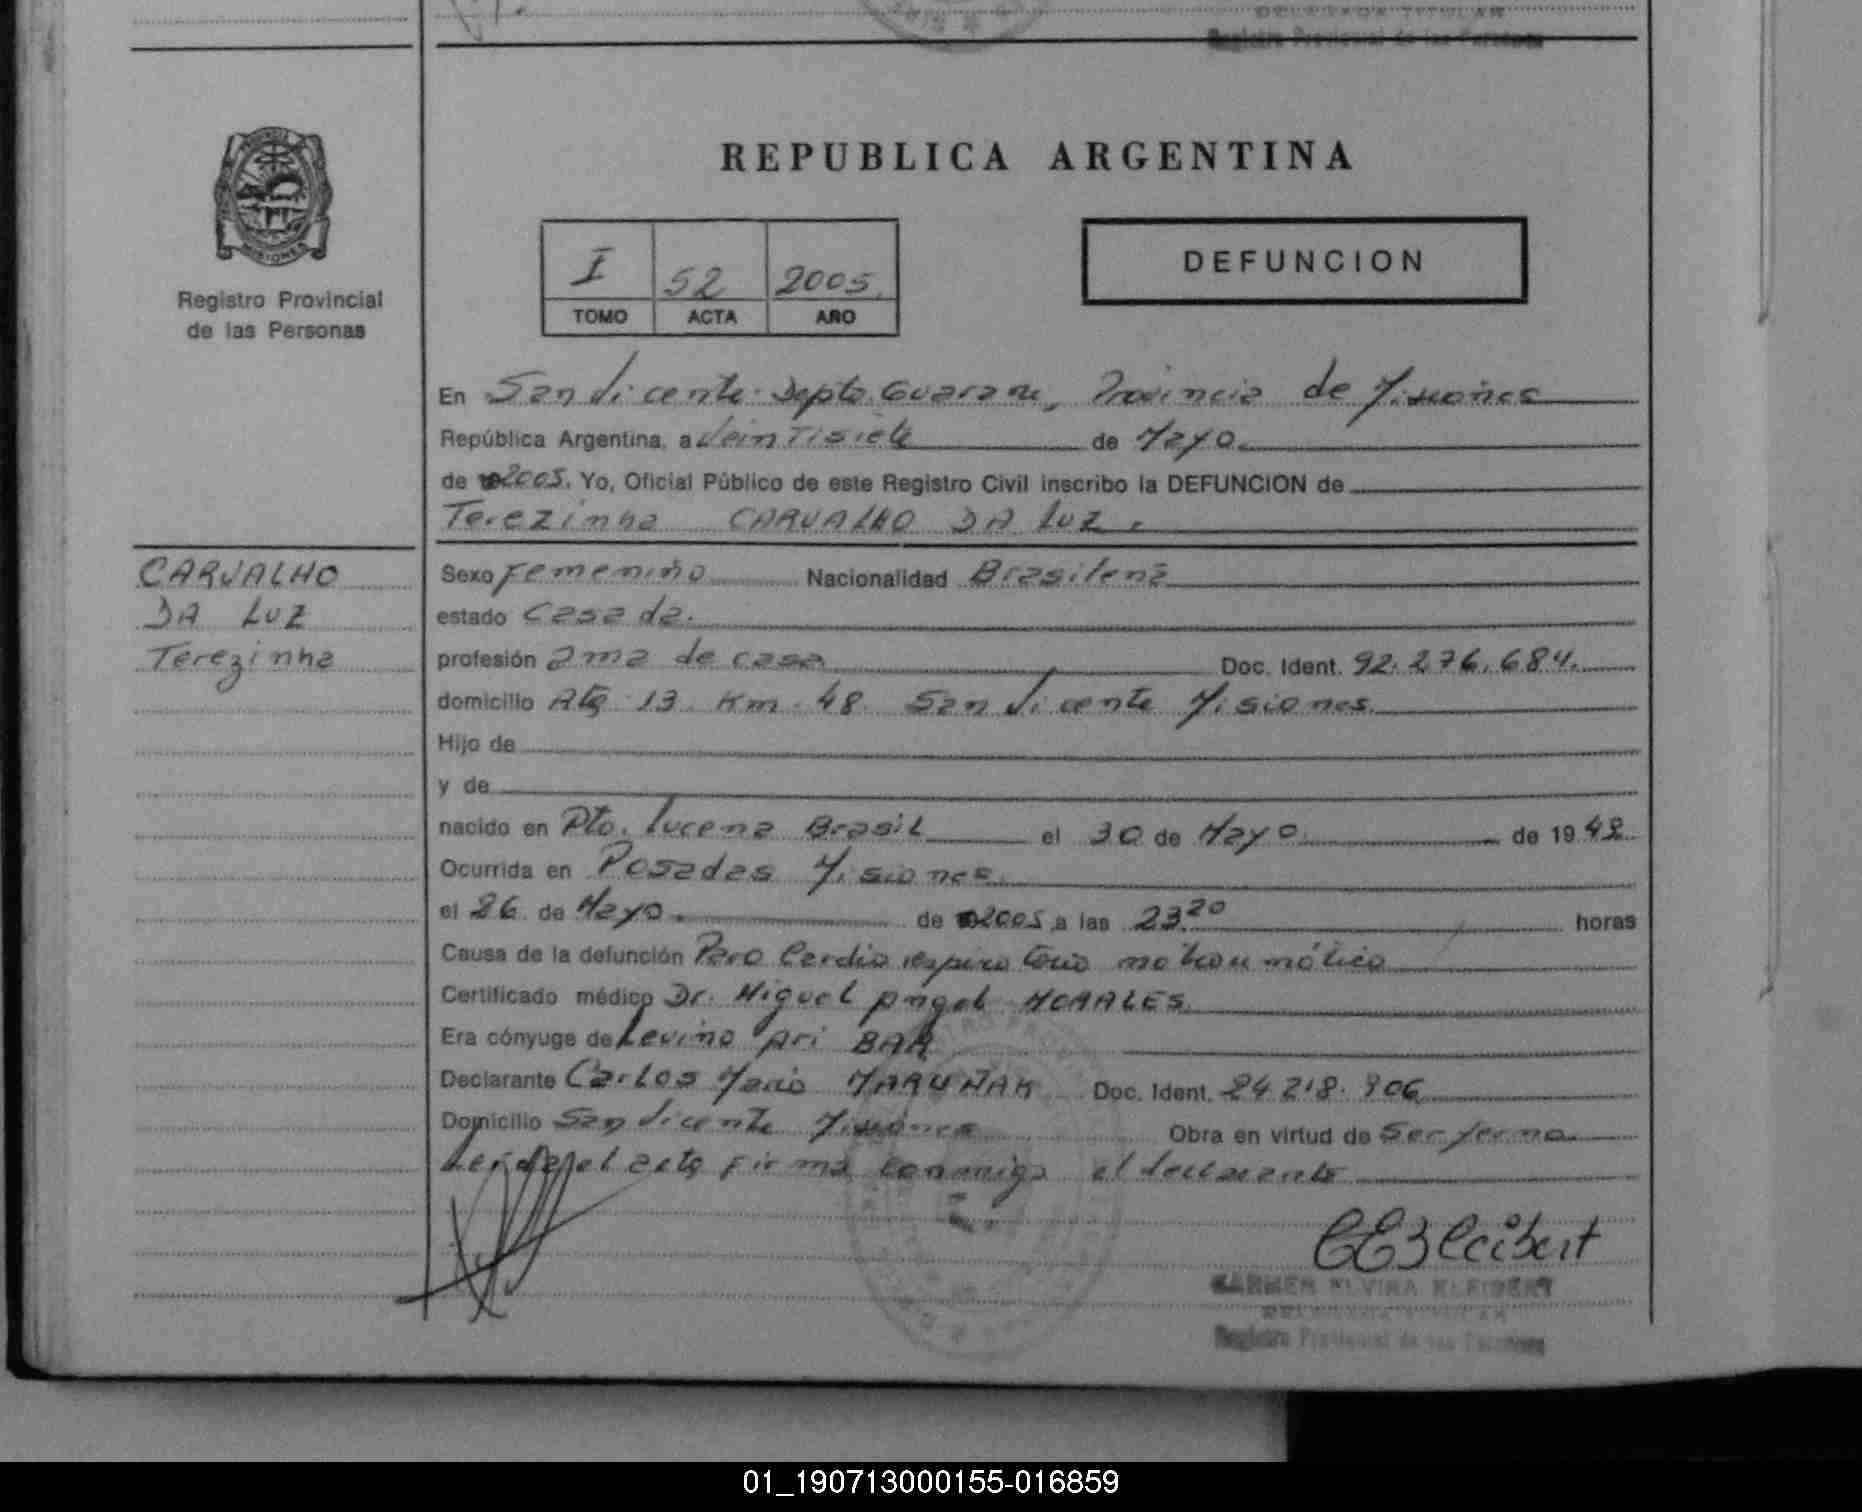 DELEGADA TITULAR
Registro Provincial de las Personas
REPUBLICA ARGENTINA
I 52 2005.
TOMO ACTA AÑO
DEFUNCION
MISIONES
Registro Provincial
de las Personas
En San Vicente Depto Guarani, Provincia de Misiones
República Argentina, a Veintisiete de Mayo.
de 2005. Yo, Oficial Público de este Registro Civil inscribo la DEFUNCION de
Terezinha CARVALHO DA LUZ.
CARVALHO
DA LUZ
Terezinha
Sexo Femenino Nacionalidad Brasileña
estado Casada.
profesión ama de casa Doc. Ident. 92.276.684.
domicilio Rta 13 Km. 48. San Vicente Misiones.
Hijo de
y de
nacido en Pto. Lucena Brasil el 30 de Mayo de 19
Ocurrida en Posadas Misiones.
el 26 de Mayo. de 2005 a las 23.20 horas
Causa de la defunción Paro Cardio respiratorio no traumático
Certificado médico Dr. Miguel Angel MORALES.
Era cónyuge de Levino Ari BAR
Declarante Carlos Mario MARUÑAK Doc. Ident. 24 218.
Domicilio San Vicente Misiones Obra en virtud de Ser yerno.
Leida el acta firma conmigo el declarante
CARMEN ELVIRA KLEIBERT
DELEGADA TITULAR
Registro Provincial de las Personas
01_190713000155-016859